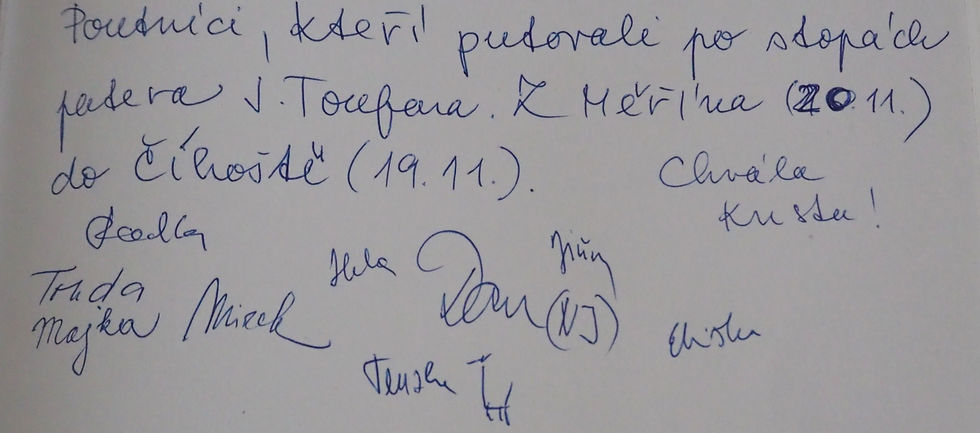 Poutníci, kteří putovali po stopách
patera J. Toufara. Z Měřína (20.11.)
do Číhoště (19.11.).
Chvála
Kristu!
Radka
Jiří
Hela
Truda
Majka Mirek
Dan (NJ)
Eliška
Terezka